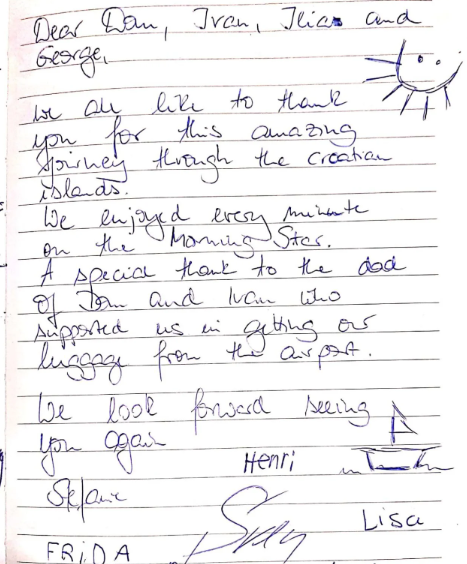 Dear Dom, Ivan, Ilias and
George,
We all like to thank
you for this amazing
journey through the croatian
islands.
We enjoyed every minute
on the Morning Star.
A special thank to the dad
of Dom and Ivan who
supported us in getting our
luggage from the airport.
We look forward seeing
you again
Henri
Stefanie
Lisa
FRiDA